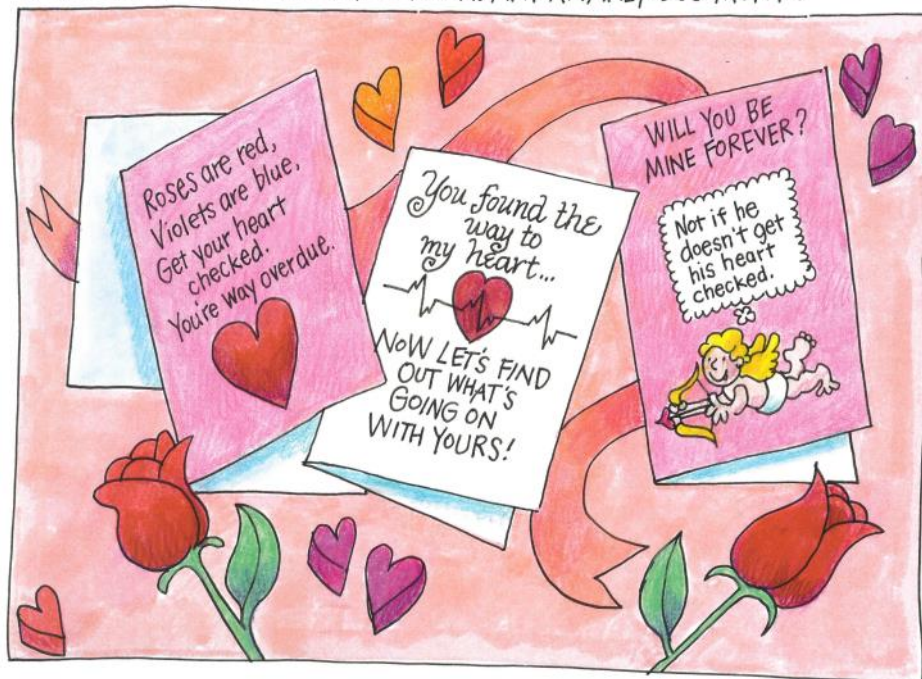 Roses are red,
Violets are blue,
Get your heart
checked.
You're way overdue.
You found the
way to
my heart...
NOW LET'S FIND
OUT WHAT'S
GOING ON
WITH YOURS!
WILL YOU BE
MINE FOREVER?
Not if he
doesn't get
his heart
checked.